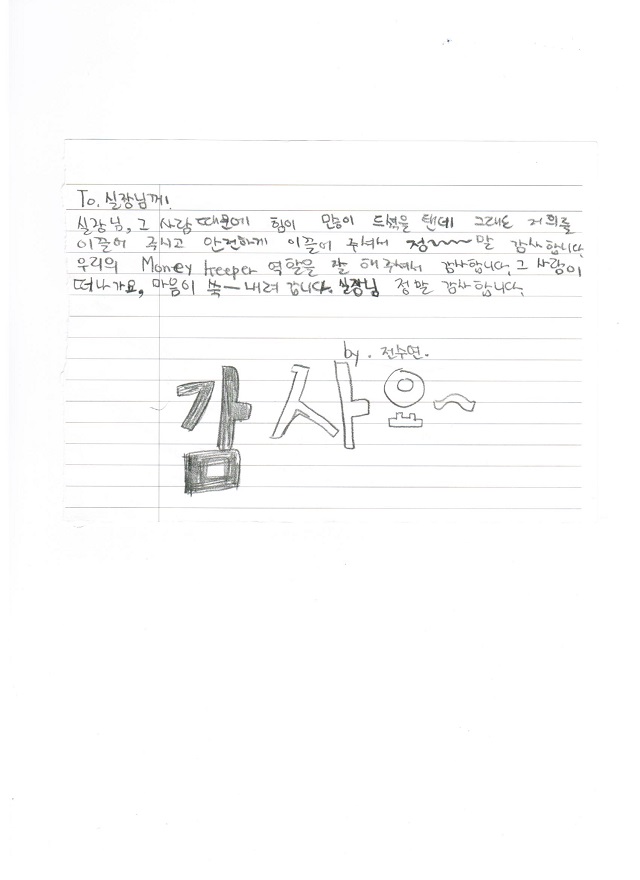 To. 실장님께!
실장님, 그 사람 때문에 힘이 많이 드셨을 텐데 그래도 저희를
이끌어 주시고 안전하게 이끌어 주셔서 정~~~말 감사합니다.
우리의 Money keeper 역할을 잘 해주셔서 감사합니다. 그 사람이
떠나가요, 마음이 쑥ㅡ내려 갑니다. 실장님 정말 감사합니다.
by. 전수연.
감사요~